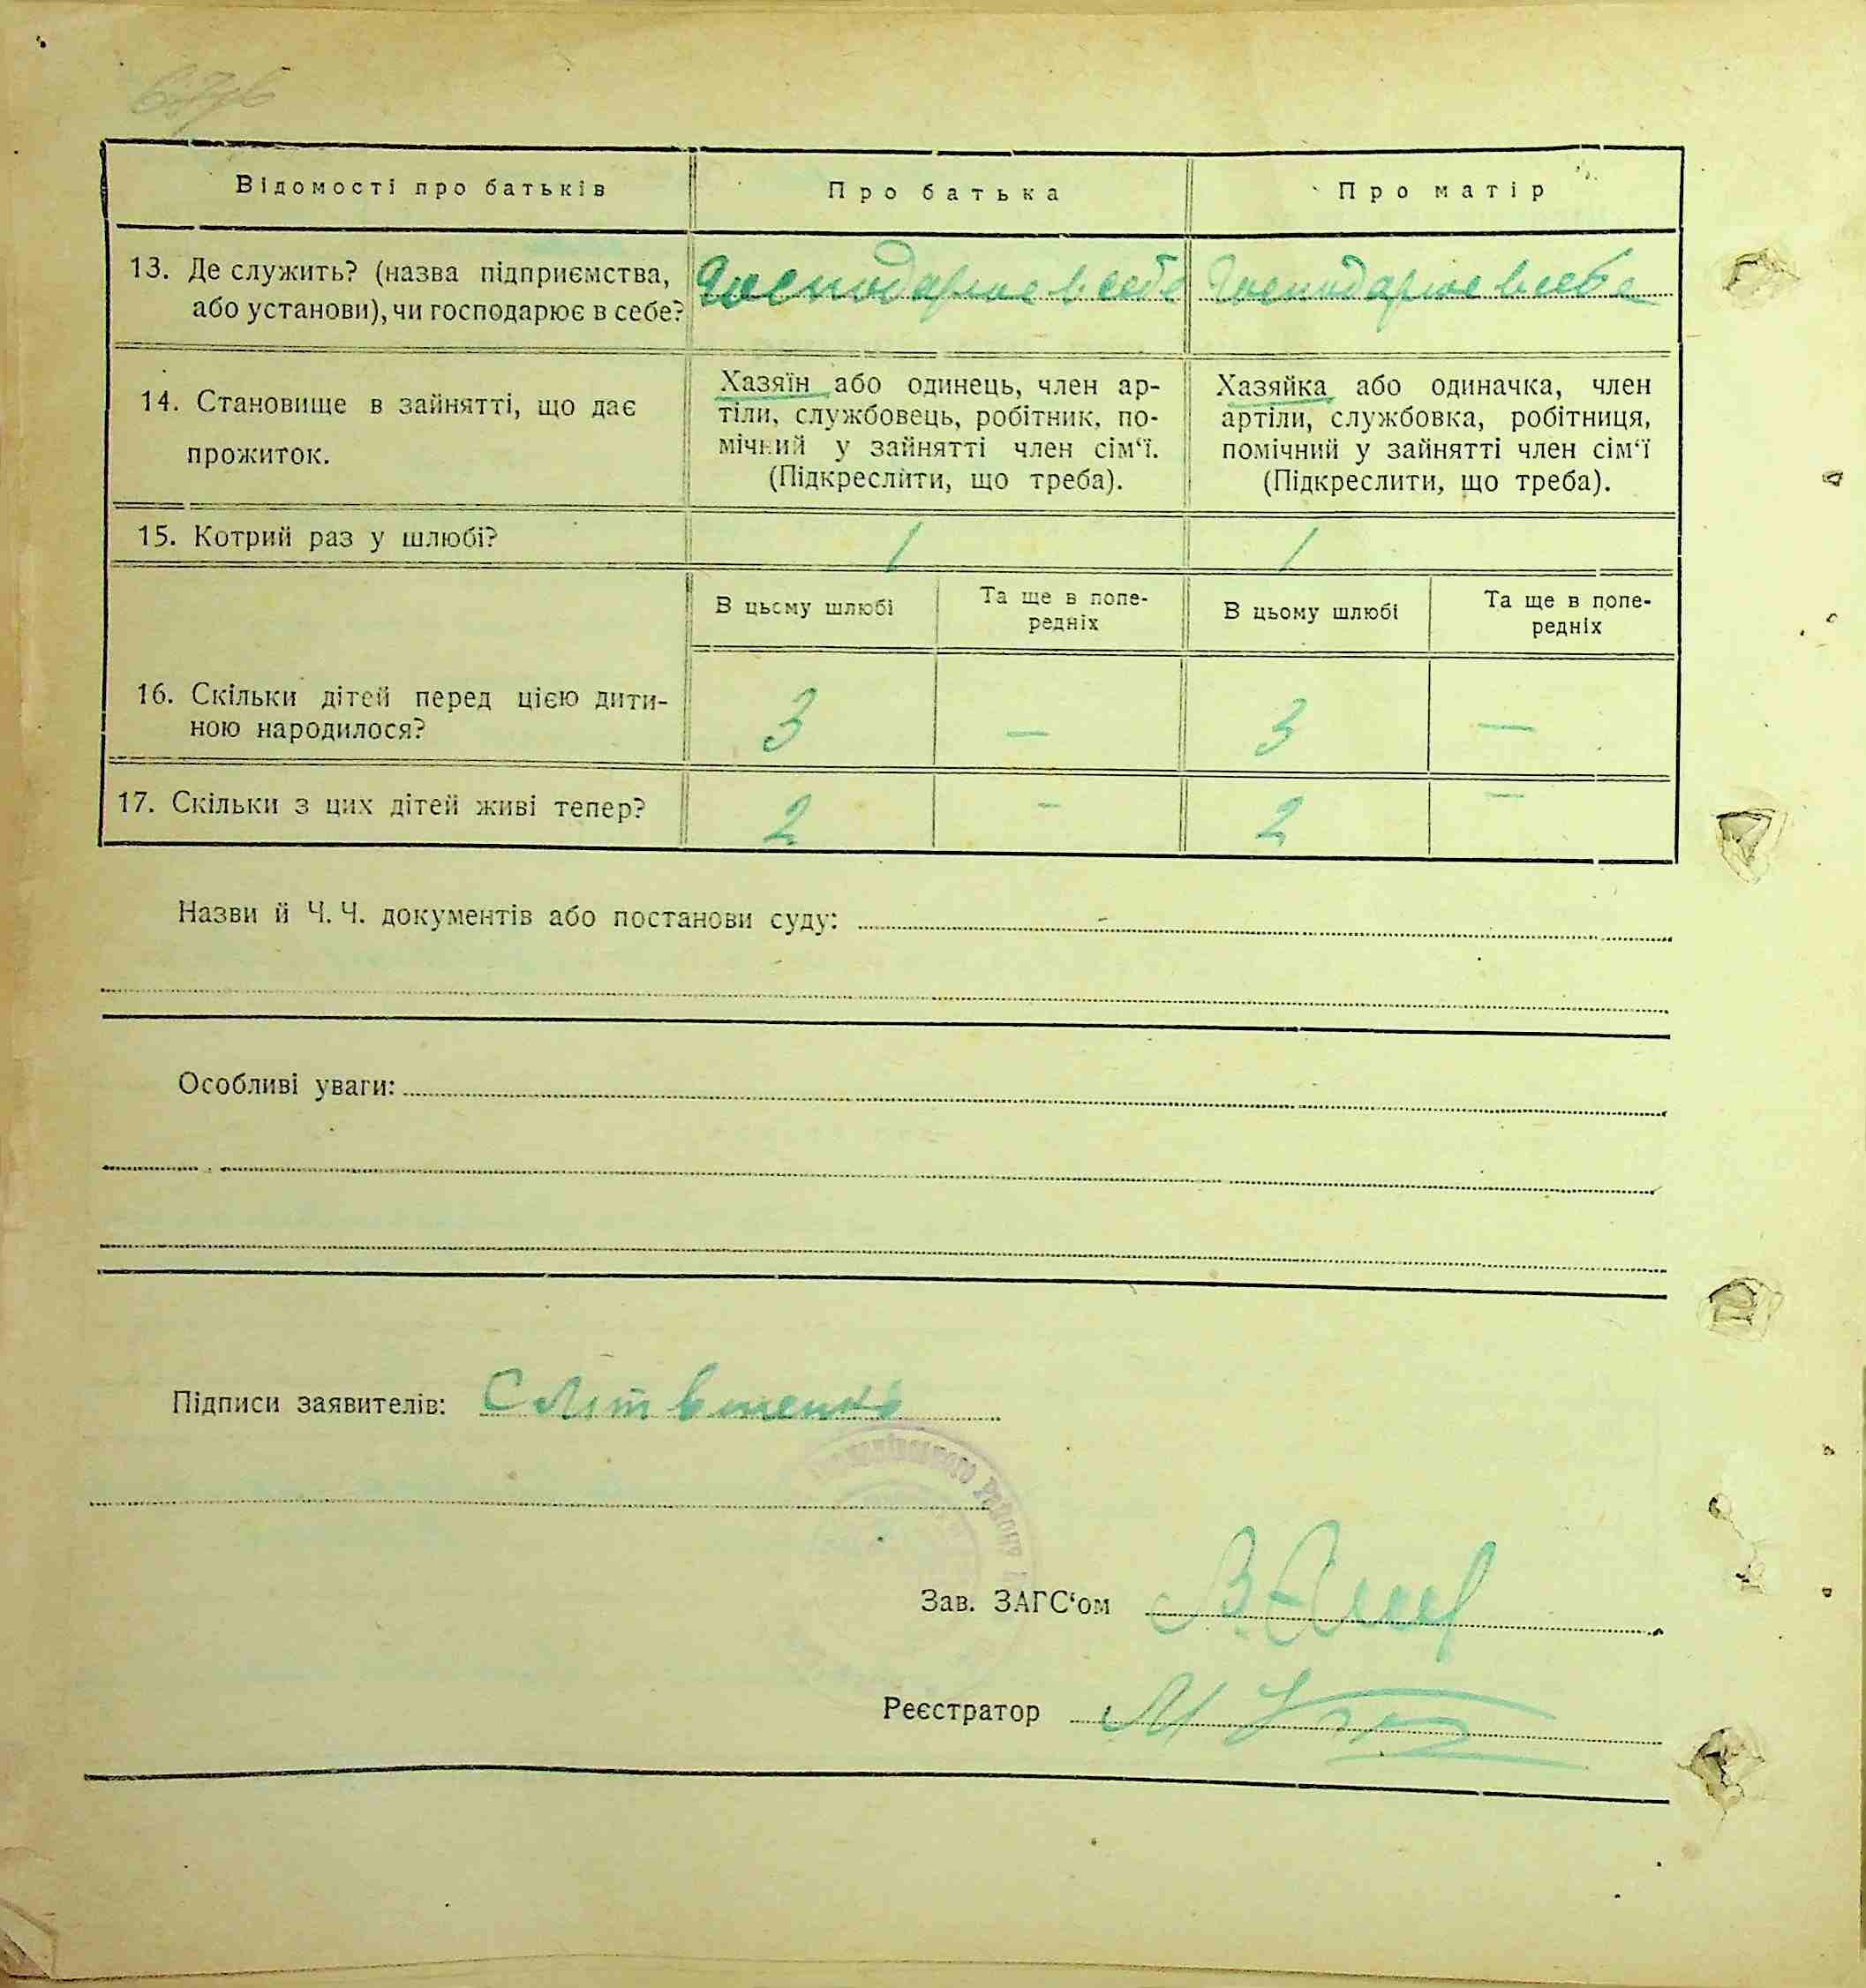 Відомості про батьків
Про батька
Про матір
13. Де служить? (назва підприємства,
або установи), чи господарює в себе?
Господарює в себе
Господарює в себе
14. Становище в зайнятті, що дає
прожиток.
Хазяїн або одинець, член ар-
тіли, службовець, робітник, по-
мічний у зайнятті член сім‘ї.
(Підкреслити, що треба).
Хазяйка або одиначка, член
артіли, службовка, робітниця,
помічний у зайнятті член сім‘ї
(Підкреслити, що треба).
15. Котрий раз у шлюбі?
1
1
В цьому шлюбі
Та ще в попе-
редніх
В цьому шлюбі
Та ще в попе-
редніх
16. Скільки дітей перед цією дити-
ною народилося?
3
—
3
—
17. Скільки з цих дітей живі тепер?
2
—
2
—
Назви й Ч. Ч. документів або постанови суду:
Особливі уваги:
Підписи заявителів:
Району
Зав. ЗАГС‘ом
Реєстратор